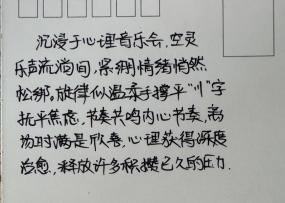 沉浸于心理音乐会，空灵
乐声流淌间，紧绷情绪悄然
松绑。旋律似温柔手撑平“川”字
抚平焦虑，节奏共鸣内心节奏，离
场时满是欣喜，心理获得深度
治愈，释放许多积攒已久的压力.